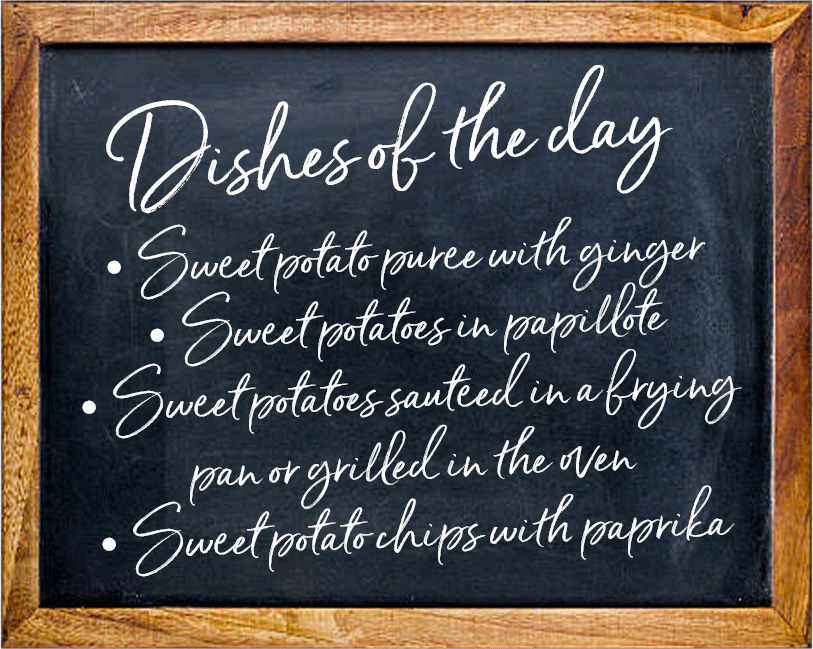 Dishes of the day
• Sweet potato puree with ginger
• Sweet potatoes in papillote
• Sweet potatoes sauteed in a frying
pan or grilled in the oven
• Sweet potato chips with paprika